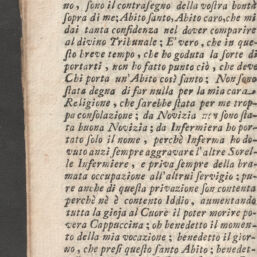 no, sono il contrasegno della vostra bontà
sopra di me; Abito santo, Abito caro, che mi
dai tanta confidenza nel dover comparire
al divino Tribunale; E' vero, che in que-
sto breve tempo, che ho goduta la sorte di
portarti, non ho fatto punto ciò, che deve
Chi porta un' Abito così santo; Non sono
stata degna di far nulla per la mia cara
Religione, che sarebbe stata per me trop-
pa consolazione; da Novizia non sono sta-
ta buona Novizia; da Infermiera ho por-
tato solo il nome, perchè Inferma ho do-
vuto anzi sempre aggravare l'altre Sorel-
le Infermiere, e priva sempre della bra-
mata occupazione all'altrui servigio; pu-
re anche di questa privazione son contenta
perchè nè è contento Iddio, aumentando
tutta la gioja al Cuore il poter morire po-
vera Cappuccina; oh benedetto il momen-
to della mia vocazione; benedetto il gior-
no, che presi questo santo Abito; benedet-